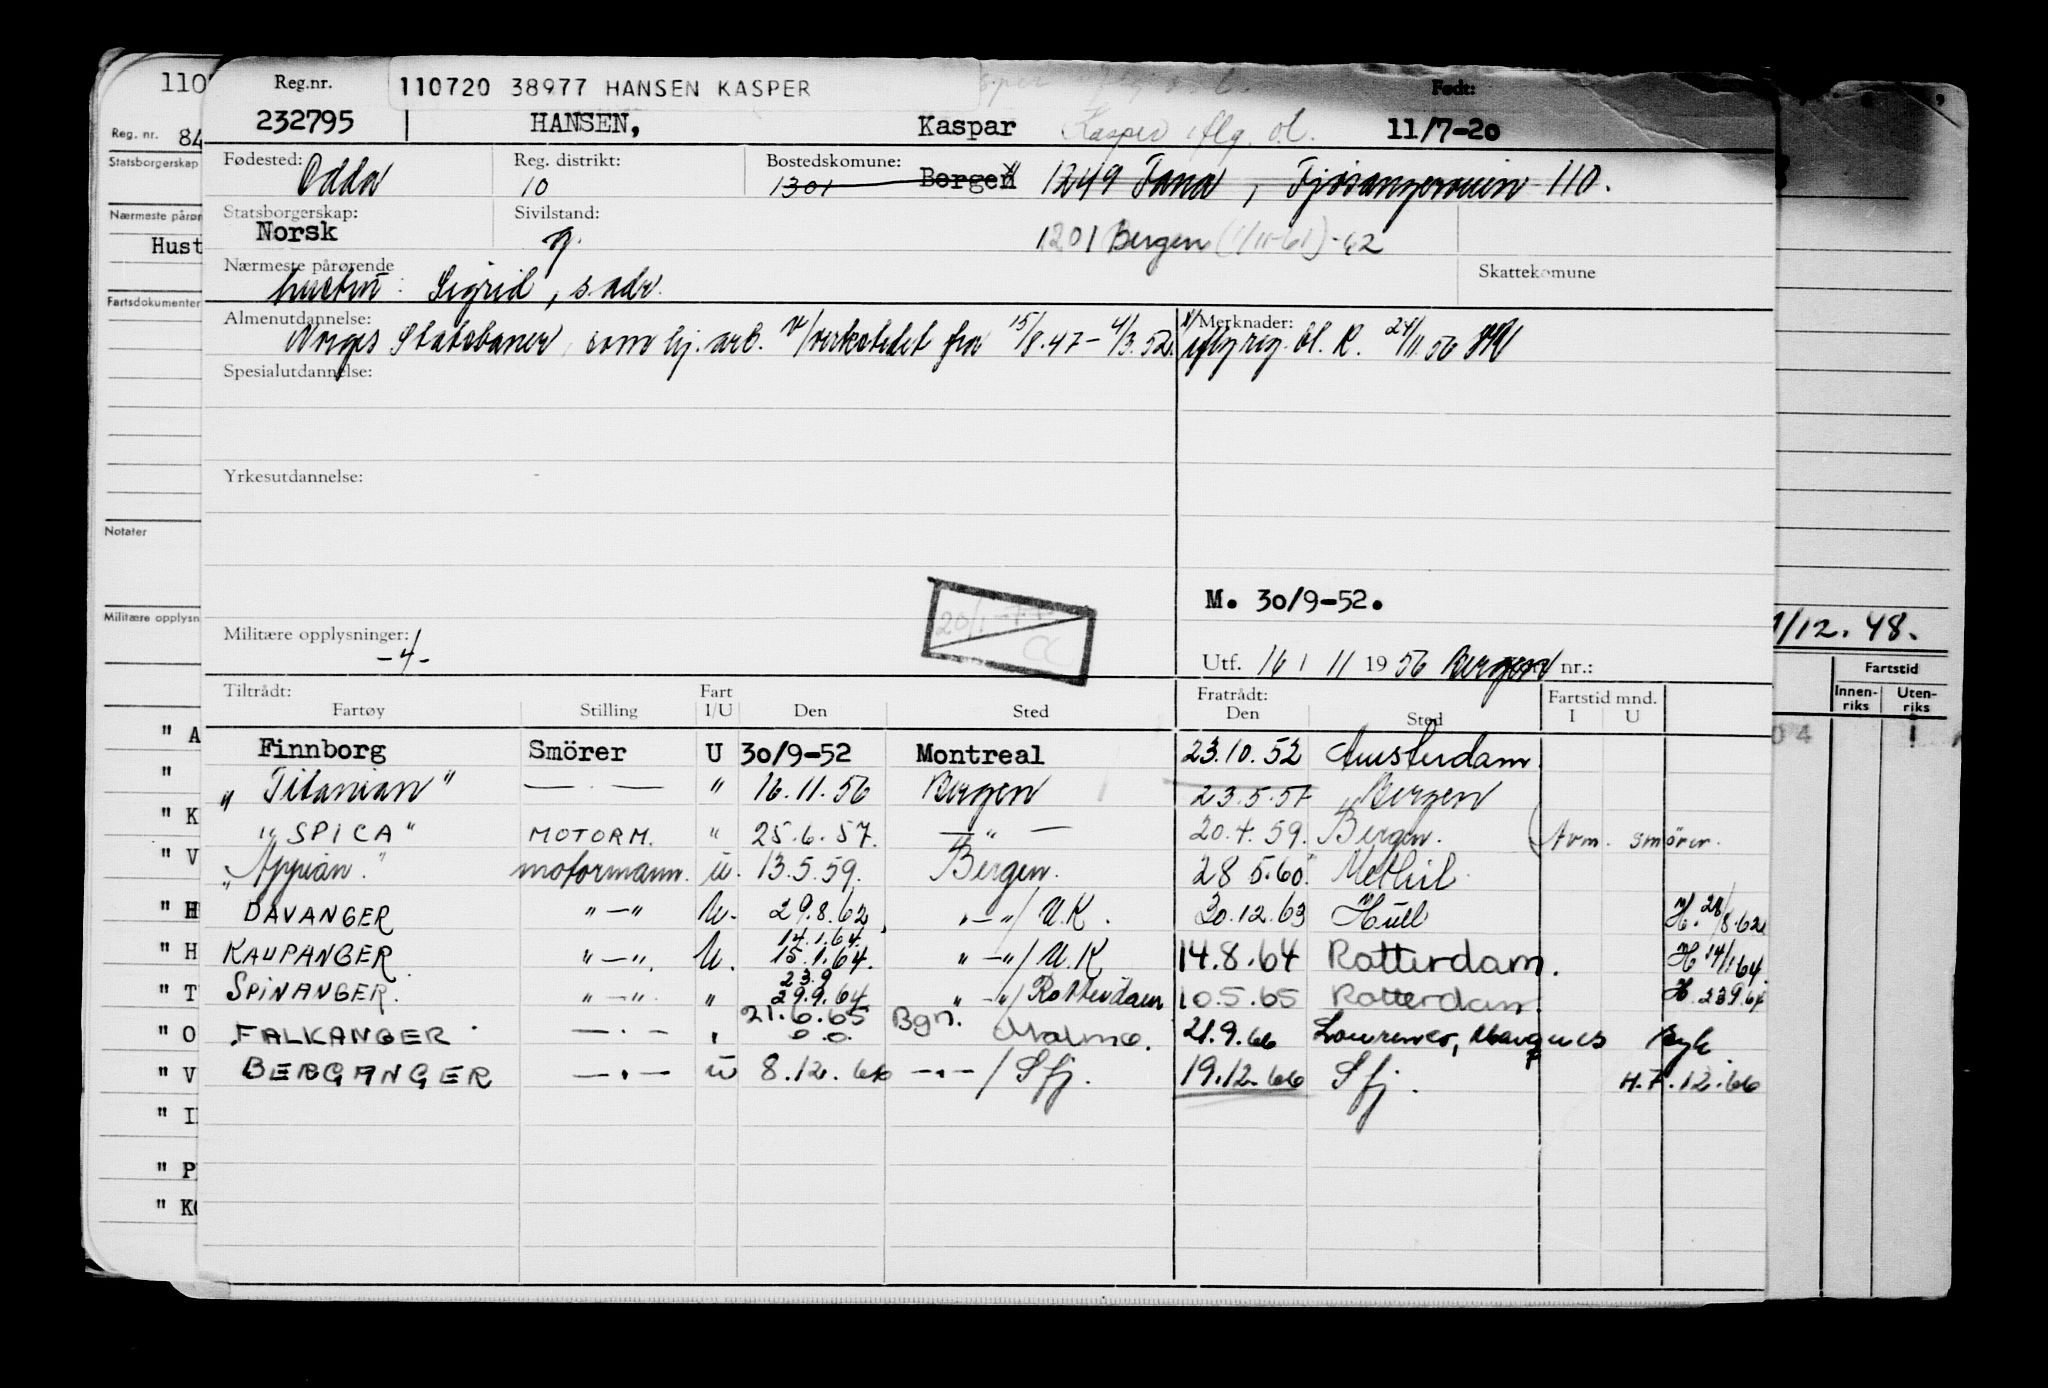 110
Reg.nr. 110720 38977 HANSEN KASPER Født:
232795 HANSEN, Kaspar Kasper iflg. o.l. 11/7-20
Reg. nr. 84
Statsborgerskap
Fødested: Odda Reg. distrikt: 10 Bostedskomune: 1301 Bergen 1249 Fana, Fjøsangerveien 110.
Nærmeste pårør
Hust
Statsborgerskap: Norsk Sivilstand: g. 1201 Bergen (1/11-61)-62
Nærmeste pårørende hustru: Sigrid, s. adr. Skattekomune
Fartsdokumenter
Almenutdannelse: Norges Statsbaner, som hj. arb. v/verkstedet fra 15/8.47 – 4/3.52. Merknader: 24/11.56
Spesialutdannelse:
Yrkesutdannelse:
Notater
M. 30/9-52.
Militære opplysn
Militære opplysninger: -4-
20/1-77
1/12.48.
Utf. 16 / 11 1956 Bergen nr.:
Fartstid
Innen-riks Uten-riks
Tiltrådt: Fart Fratrådt: Fartstid mnd.
Fartøy Stilling I/U Den Sted Den Sted I U
" A Finnborg Smörer U 30/9-52 Montreal 23.10.52 Amsterdam. 04
" "Titanian" — . — " 16.11.56 Bergen 23.5.57 Bergen
" K "SPICA" MOTORM. " 25.6.57. — " — 20.4.59. Bergen. Avm. smörer.
" V "Appian". motormann. u. 13.5.59. Bergen. 28 5.60. Methil
" H DAVANGER " — " U. 29.8.62 " — " / U.K. 30.12.63 Hull H. 28/8.62
" H KAUPANGER " — " U. 14.1.64. 15.1.64. " — " / U.K 14.8.64 Rotterdam. H 14/1 64.
" T SPINANGER. " — " " 23.9 29.9.64 " — " / Rotterdam 10.5.65 Rotterdam. H. 23 9.64
" O FALKANGER — . — " 21.6.65 Bgn. Malmö. 21.9.66 Lourenco, Marques syk
" V BERGANGER — . — u 8.12.66 — . — / Sfj. 19.12.66 Sfj. H.7.12.66
" I
" P
" KO